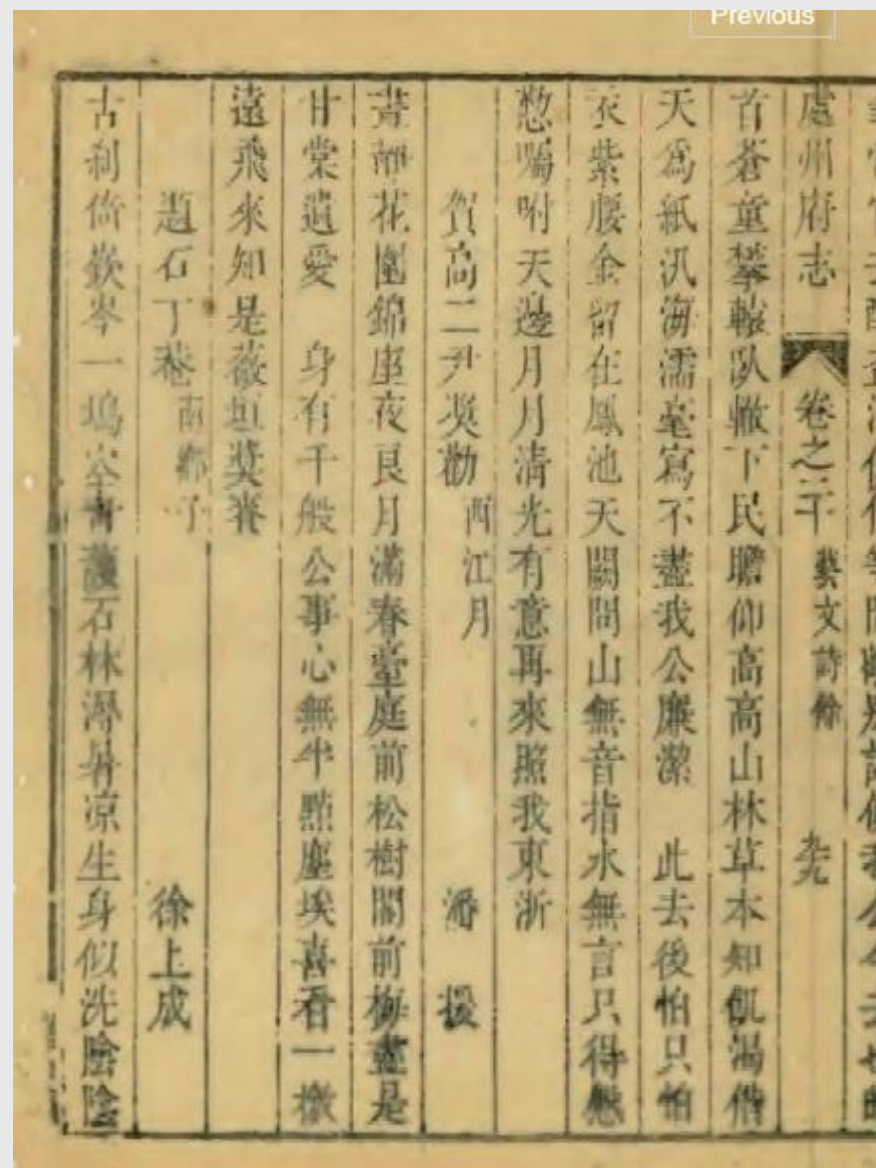 Previous
處州府志 卷之二十 藝文詩餘
首蒼童攀轅臥轍下民瞻仰高高山林草本知飢渴借
天為紙汎海濡毫寫不盡我公廉潔 此去後怕只怕
衣紫腰金留在鳳池天闕問山無音指水無言只得慇
懃囑咐天邊月月清光有意再來照我東浙
賀高二尹奬勸 西江月 潘援
花圍錦座夜良月滿春臺庭前松樹閣前梅盡是
甘棠遺愛 身有千般公事心無半點塵埃喜看一檄
遠飛來知是薇垣奬賚
題石丁菴 南鄉子 徐上成
古刹倚嶔岑一塢空青護石林溽暑凉生身似洗陰陰